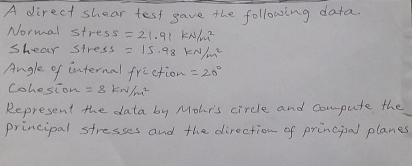 A direct shear test gave the following data.
Normal stress = 21.91 kN/m²
Shear stress = 15.98 kN/m²
Angle of internal friction = 20°
Cohesion = 8 kN/m²
Represent the data by Mohr's circle and compute the
principal stresses and the direction of principal planes